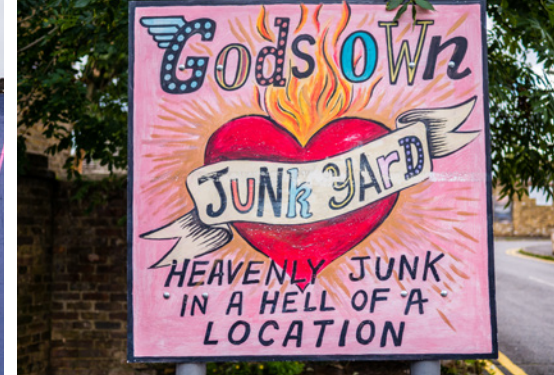 Gods OWn
JuNk yArD
HEAVENLY JUNK
IN A HELL OF A
LOCATION